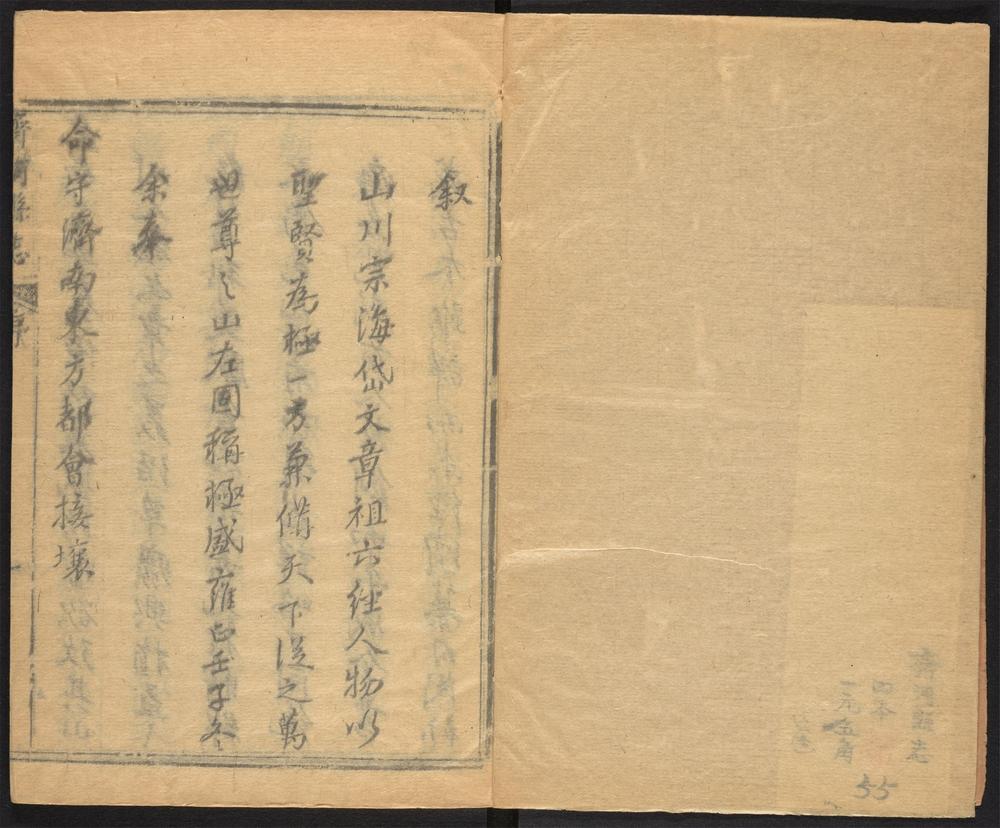 齊河縣志
四本
一元五角
55
叙
山川宗海岱文章祖六經人物以
聖賢為極一方兼備天下從之萬
世尊之山左固稱極盛雍正壬子冬
余奉
命守濟南東方都會接壤
齊河縣志
序
一